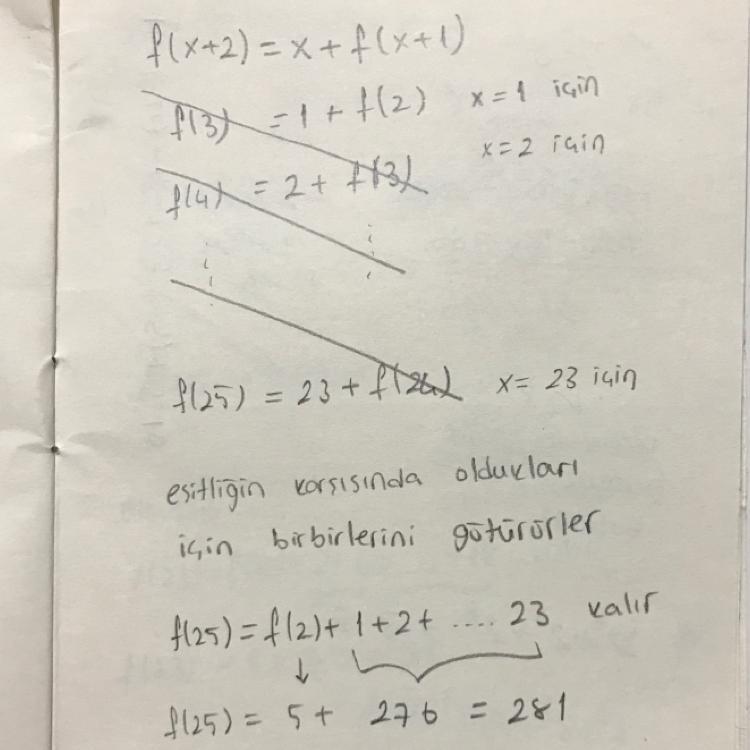 f(x+2) = x + f(x+1)
f(3) = 1 + f(2) x = 1 için
f(4) = 2 + f(3) x = 2 için
f(25) = 23 + f(24) x = 23 için
esitliğin karsısında oldukları
için birbirlerini götürürler
f(25) = f(2) + 1 + 2 + .... 23 kalır
f(25) = 5 + 276 = 281